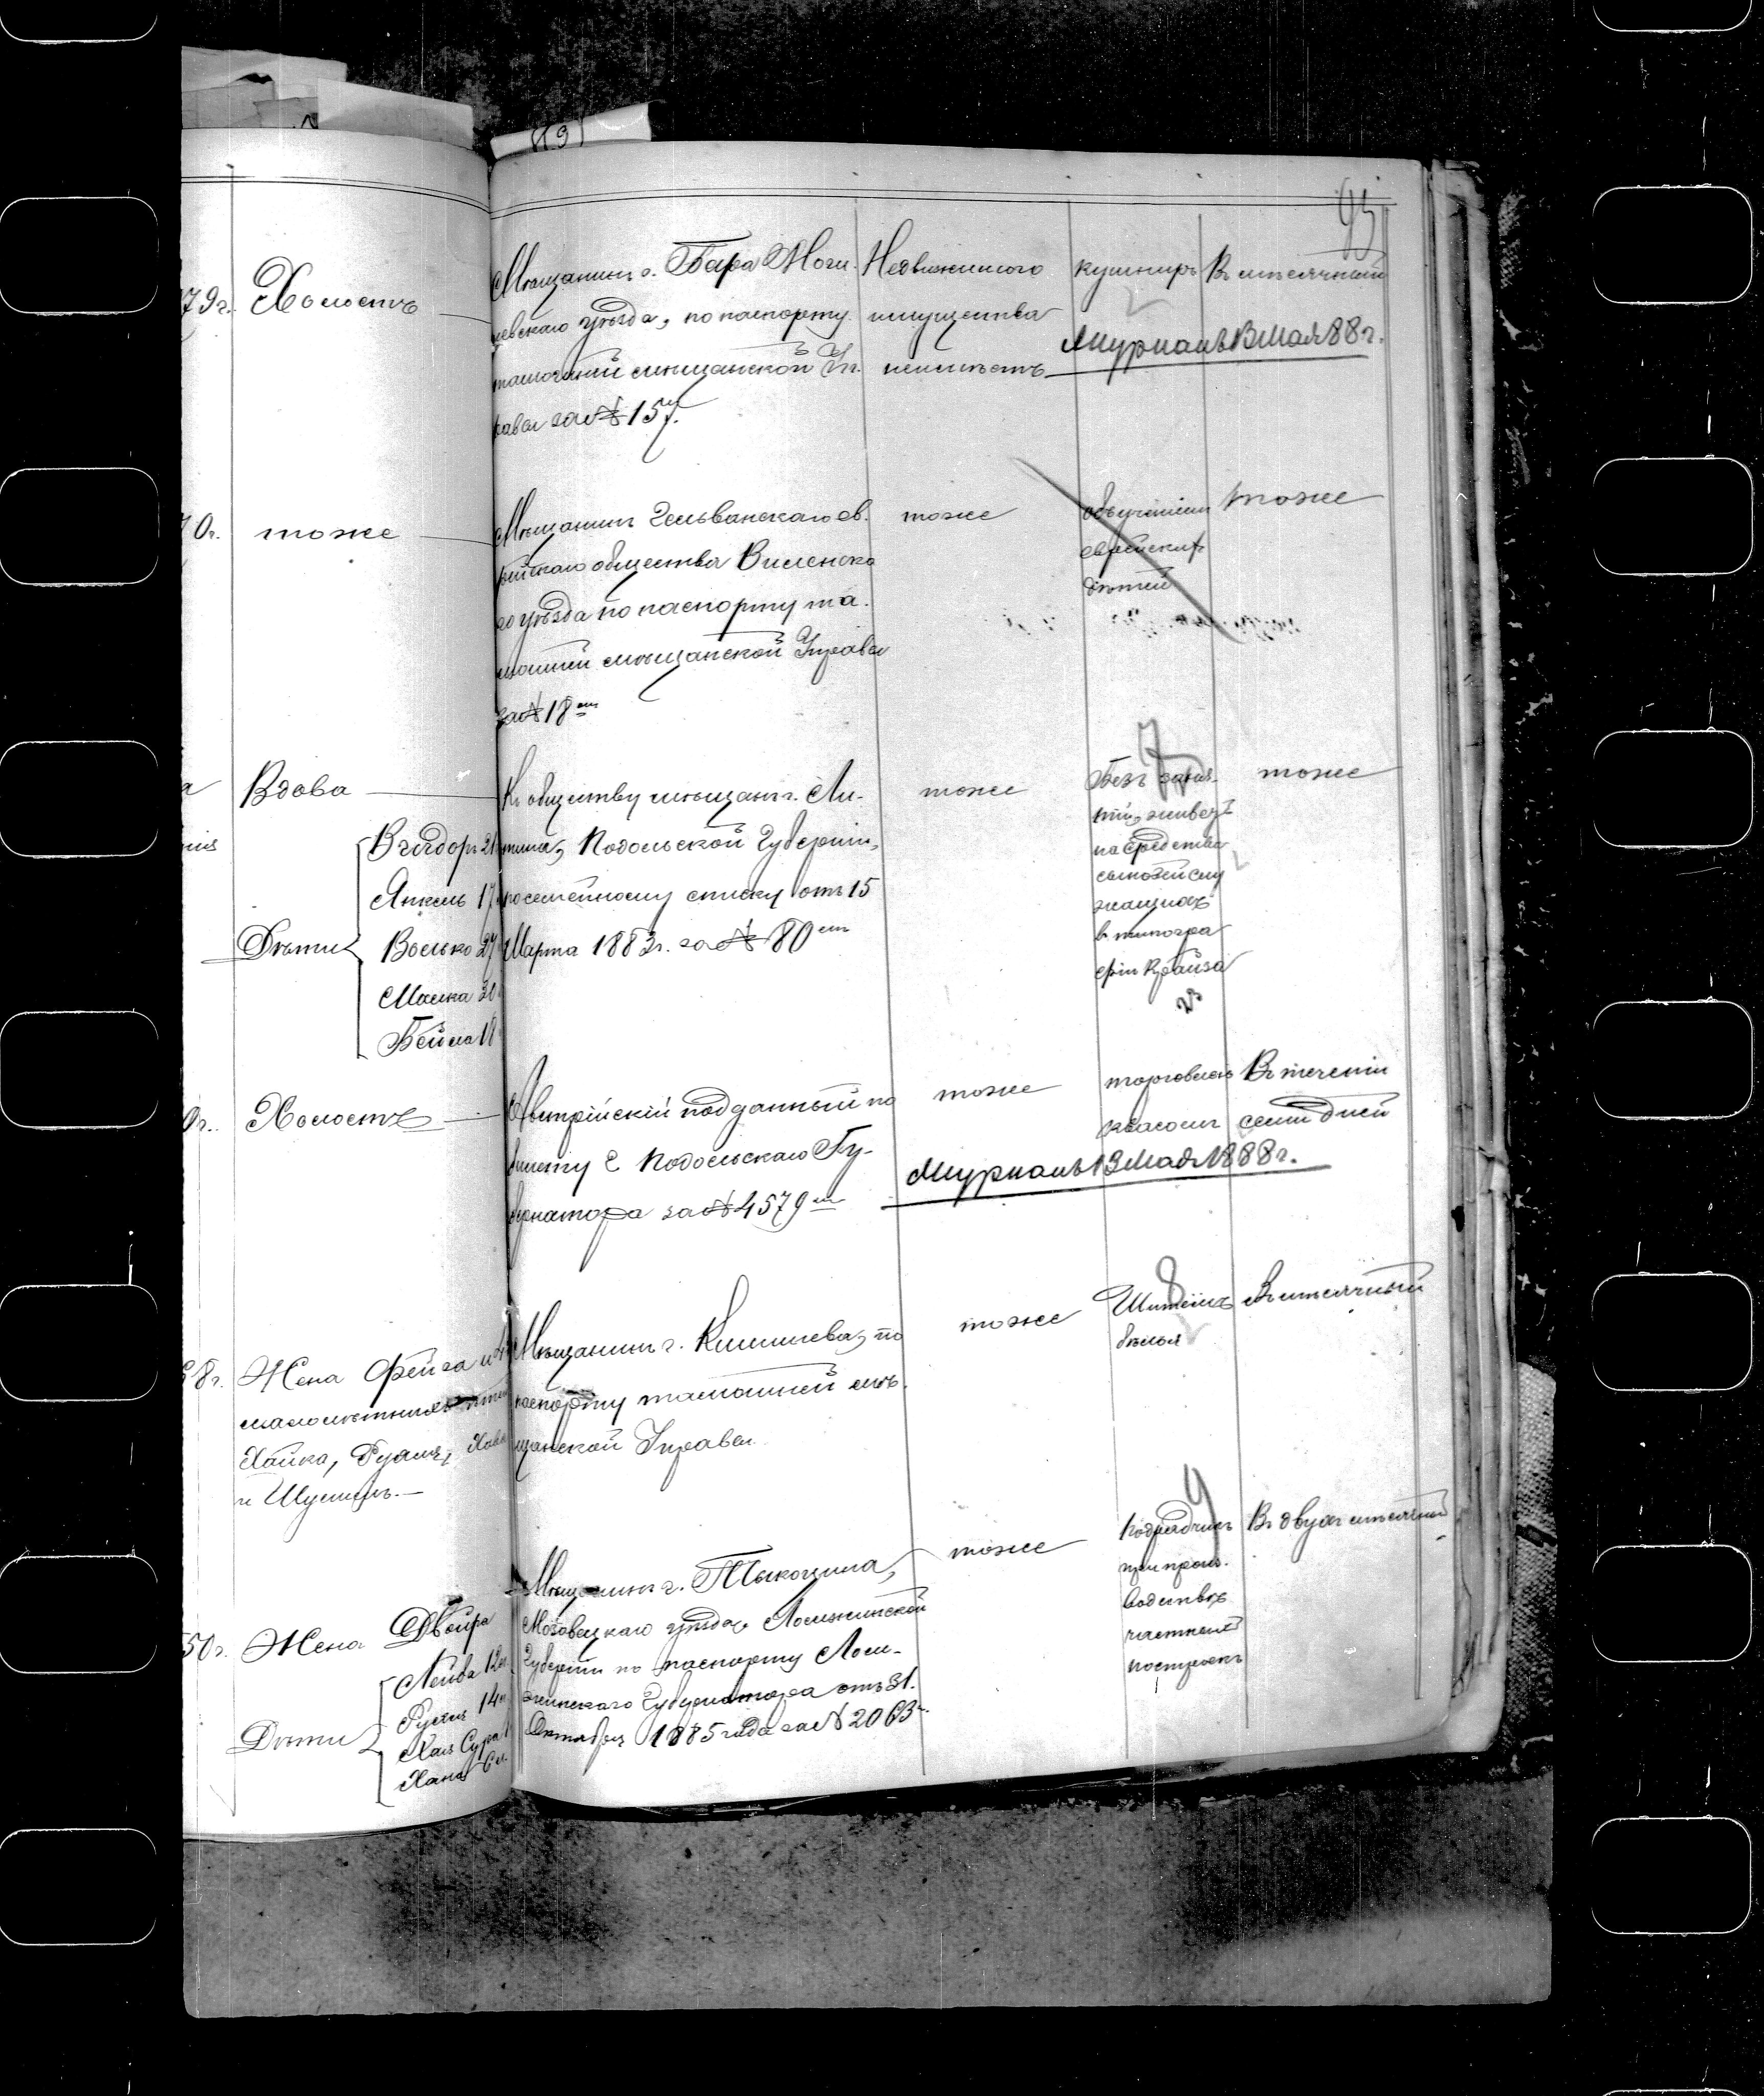 119
93
79г. Холостъ
Мѣщанинъ г. Бара Моги-
левскаго уѣзда, по паспорту
тамошней мѣщанской Уп-
равы за № 157.
Недвижимого
имущества
неимѣетъ
кушниръ
Въ мѣсячный
Журналъ 13 Мая 88 г.
70г. тоже
Мѣщанинъ Гельванскаго ев-
рейскаго общества Виленска
го уѣзда по паспорту та-
мошней мѣщанской Управы
за № 18
тоже
обученіемъ
еврейскихъ
дѣтей
тоже
Вдова
Дѣти
Вигдоръ 21
Янкель 17
Волько 27
Малка 30
Бейла 18
Къ обществу мѣщанъ г. Ли-
тина, Подольской Губерніи,
посемейному списку отъ 15
Марта 1883 г. за № 80
тоже
7
Безъ заня-
тій, живетъ
на средства
сыновей слу
жащихъ
въ типогра
фіи Крайза
тоже
0г. Холостъ
Австрійскій подданный по
билету Г. Подольскаго Гу-
бернатора за № 4579
тоже
торговлею
квасомъ
Въ теченіи
семи дней
Журналъ 13 Мая 1888 г.
58г. Жена Фейга и 4
малолѣтнихъ дѣтей
Хайка, Рухля, Хава
и Шулимъ.—
Мѣщанинъ г. Кишинева, по
паспорту тамошней мѣ-
щанской Управы
тоже
8
Шитьемъ
бѣлья
Въ мѣсячный
50г. Жена Двойра
Дѣти
Лейба 12 л.
Рухля 14 л.
Хая Сура
Хана 6 л.
Мѣщанинъ г. Тыкоцина,
Мазовецкаго уѣзда, Ломжинской
Губерніи по паспорту Лом-
жинскаго Губернатора отъ 31.
Октября 1885 года за № 2063
тоже
9
Подрядчикъ
при произ-
водствѣ
частныхъ
построекъ
Въ двухъ мѣсячный